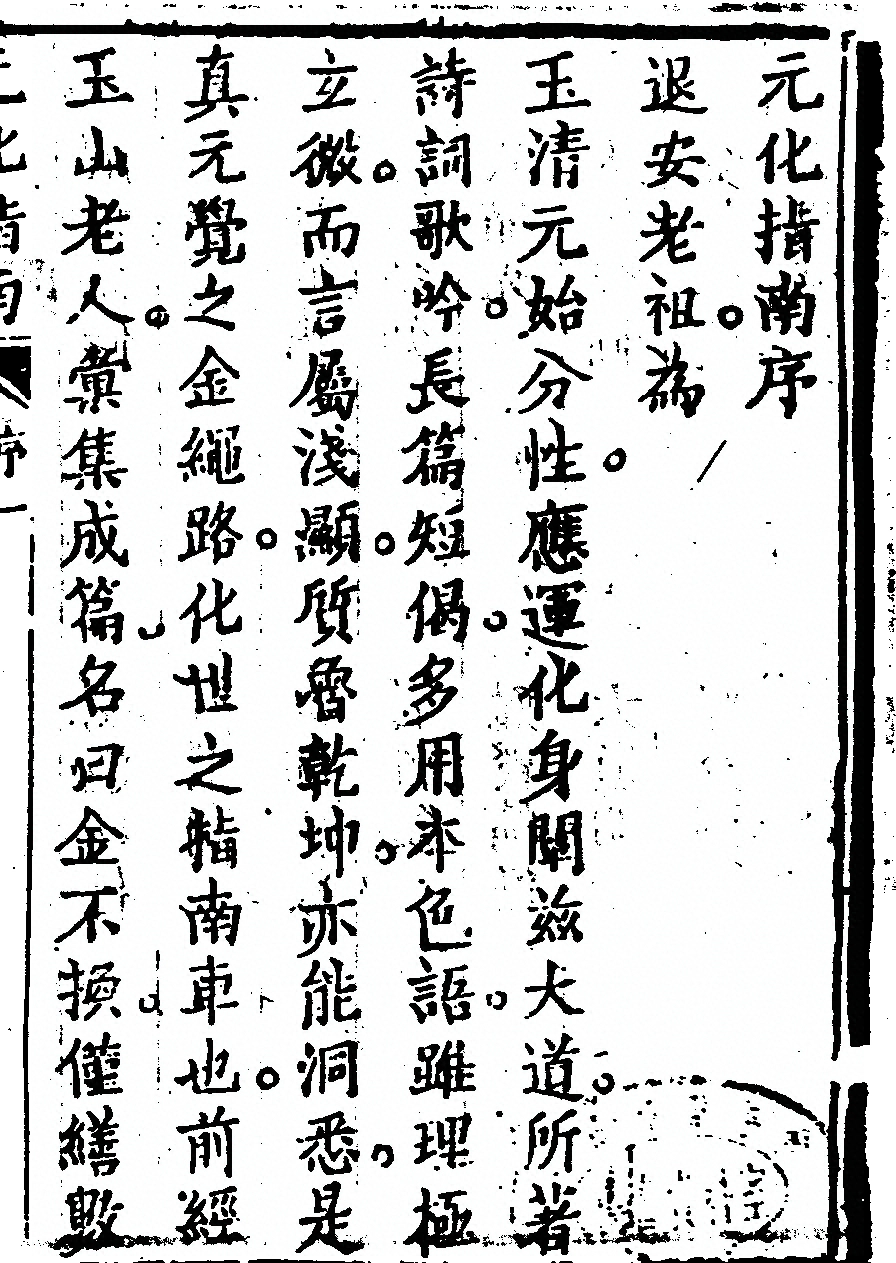 元化指南序
退安老祖為
玉清元始分性應運化身闡茲大道所著
詩詞歌吟長篇短偈多用本色語雖理極
玄微而言屬淺顯質魯乾坤亦能洞悉是
真元覺之金繩路化世之指南車也前經
玉山老人彙集成篇名曰金不換僅繕數